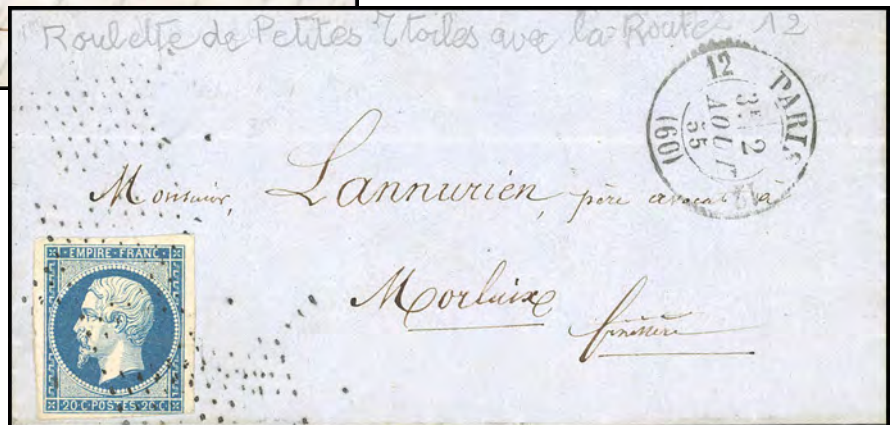 Roulette de Petites Etoiles avec la Route 12
PARIS
12
3E
2
AOUT
55
(60)
Monsieur, Lannurien, père avocat a
Morlaix
finistère
EMPIRE-FRANC
20·C·POSTES·20·C